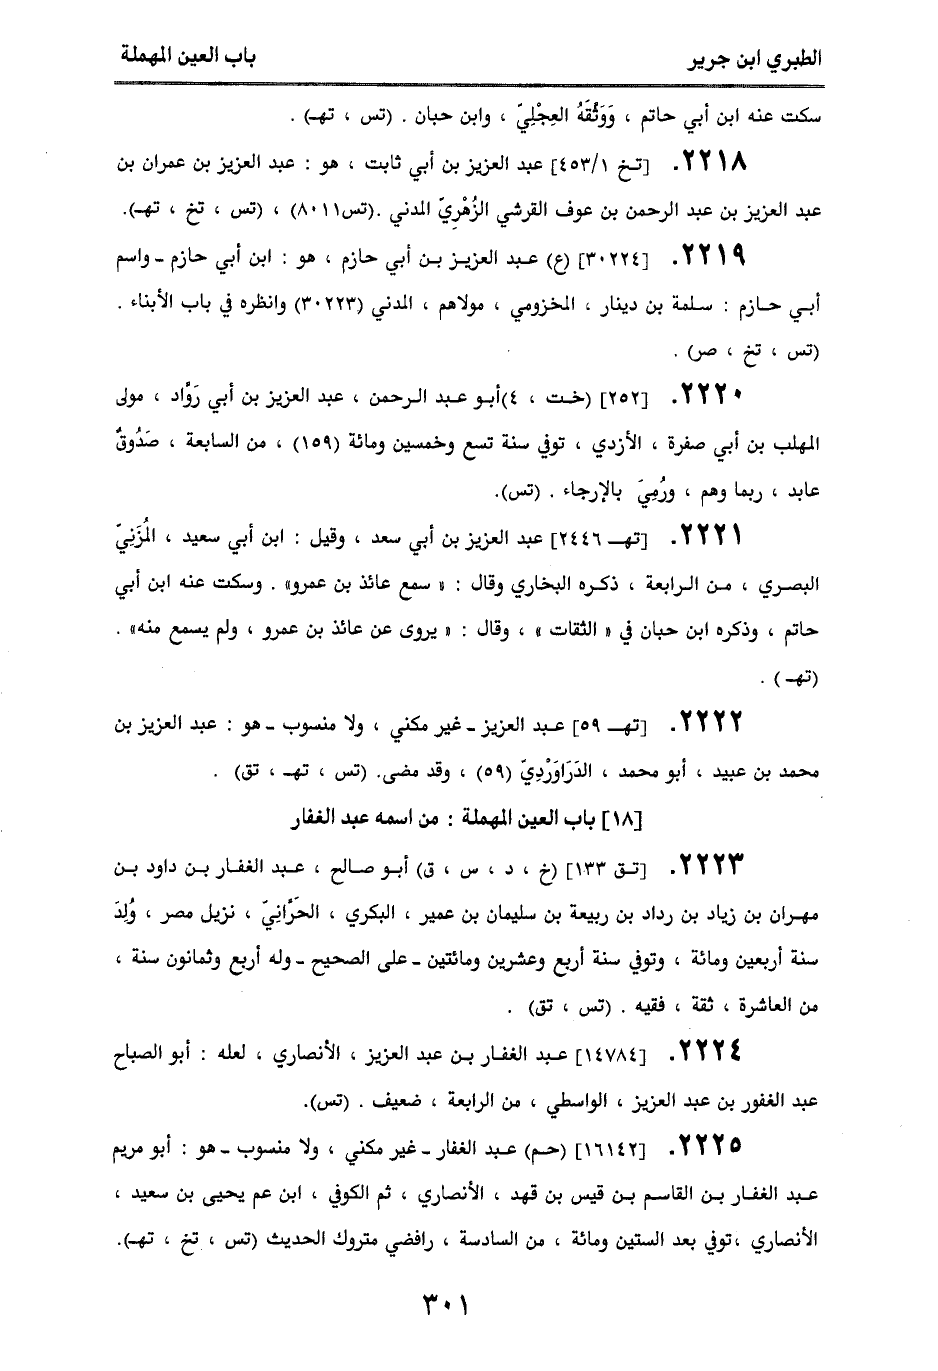 الطبري ابن جرير
باب العين المهملة
سكت عنه ابن أبي حاتم ، وَوَثَّقَهُ العِجْلِيّ ، وابن حبان . (تس ، تهـ) .
٢٢١٨. [تخ ٤٥٣/١] عبد العزيز بن أبي ثابت ، هو : عبد العزيز بن عمران بن
عبد العزيز بن عبد الرحمن بن عوف القرشي الزُهْرِيّ المدني .(تس٨٠١١) ، (تس ، تخ ، تهـ).
٢٢١٩. [٣٠٢٢٤] (ع) عبد العزيز بن أبي حازم ، هو : ابن أبي حازم ـ واسم
أبي حازم : سلمة بن دينار ، المخزومي ، مولاهم ، المدني (٣٠٢٢٣) وانظره في باب الأبناء .
(تس ، تخ ، صر) .
٢٢٢٠. [٢٥٢] (خت ، ٤)أبو عبد الرحمن ، عبد العزيز بن أبي رَوَّاد ، مولى
المهلب بن أبي صفرة ، الأزدي ، توفي سنة تسع وخمسين ومائة (١٥٩) ، من السابعة ، صَدُوقٌ
عابد ، ربما وهم ، ورُمِيَ بالإرجاء . (تس).
٢٢٢١. [تهـ ٢٤٤٦] عبد العزيز بن أبي سعد ، وقيل : ابن أبي سعيد ، المُزَنِيّ
البصري ، من الرابعة ، ذكره البخاري وقال : « سمع عائذ بن عمرو» . وسكت عنه ابن أبي
حاتم ، وذكره ابن حبان في « الثقات » ، وقال : « يروى عن عائذ بن عمرو ، ولم يسمع منه» .
(تهـ) .
٢٢٢٢. [تهـ ٥٩] عبد العزيز ـ غير مكني ، ولا منسوب ـ هو : عبد العزيز بن
محمد بن عبيد ، أبو محمد ، الدَرَاوَرْدِيّ (٥٩) ، وقد مضى. (تس ، تهـ ، تق) .
[١٨] باب العين المهملة : من اسمه عبد الغفار
٢٢٢٣. [تق ١٣٣] (خ ، د ، س ، ق) أبو صالح ، عبد الغفار بن داود بن
مهران بن زياد بن رداد بن ربيعة بن سليمان بن عمير ، البكري ، الحَرَّانِيّ ، نزيل مصر ، وُلِدَ
سنة أربعين ومائة ، وتوفي سنة أربع وعشرين ومائتين ـ على الصحيح ـ وله أربع وثمانون سنة ،
من العاشرة ، ثقة ، فقيه . (تس ، تق) .
٢٢٢٤. [١٤٧٨٤] عبد الغفار بن عبد العزيز ، الأنصاري ، لعله : أبو الصباح
عبد الغفور بن عبد العزيز ، الواسطي ، من الرابعة ، ضعيف . (تس).
٢٢٢٥. [١٦١٤٢] (حم) عبد الغفار ـ غير مكني ، ولا منسوب ـ هو : أبو مريم
عبد الغفار بن القاسم بن قيس بن قهد ، الأنصاري ، ثم الكوفي ، ابن عم يحيى بن سعيد ،
الأنصاري ،توفي بعد الستين ومائة ، من السادسة ، رافضي متروك الحديث (تس ، تخ ، تهـ).
٣٠١